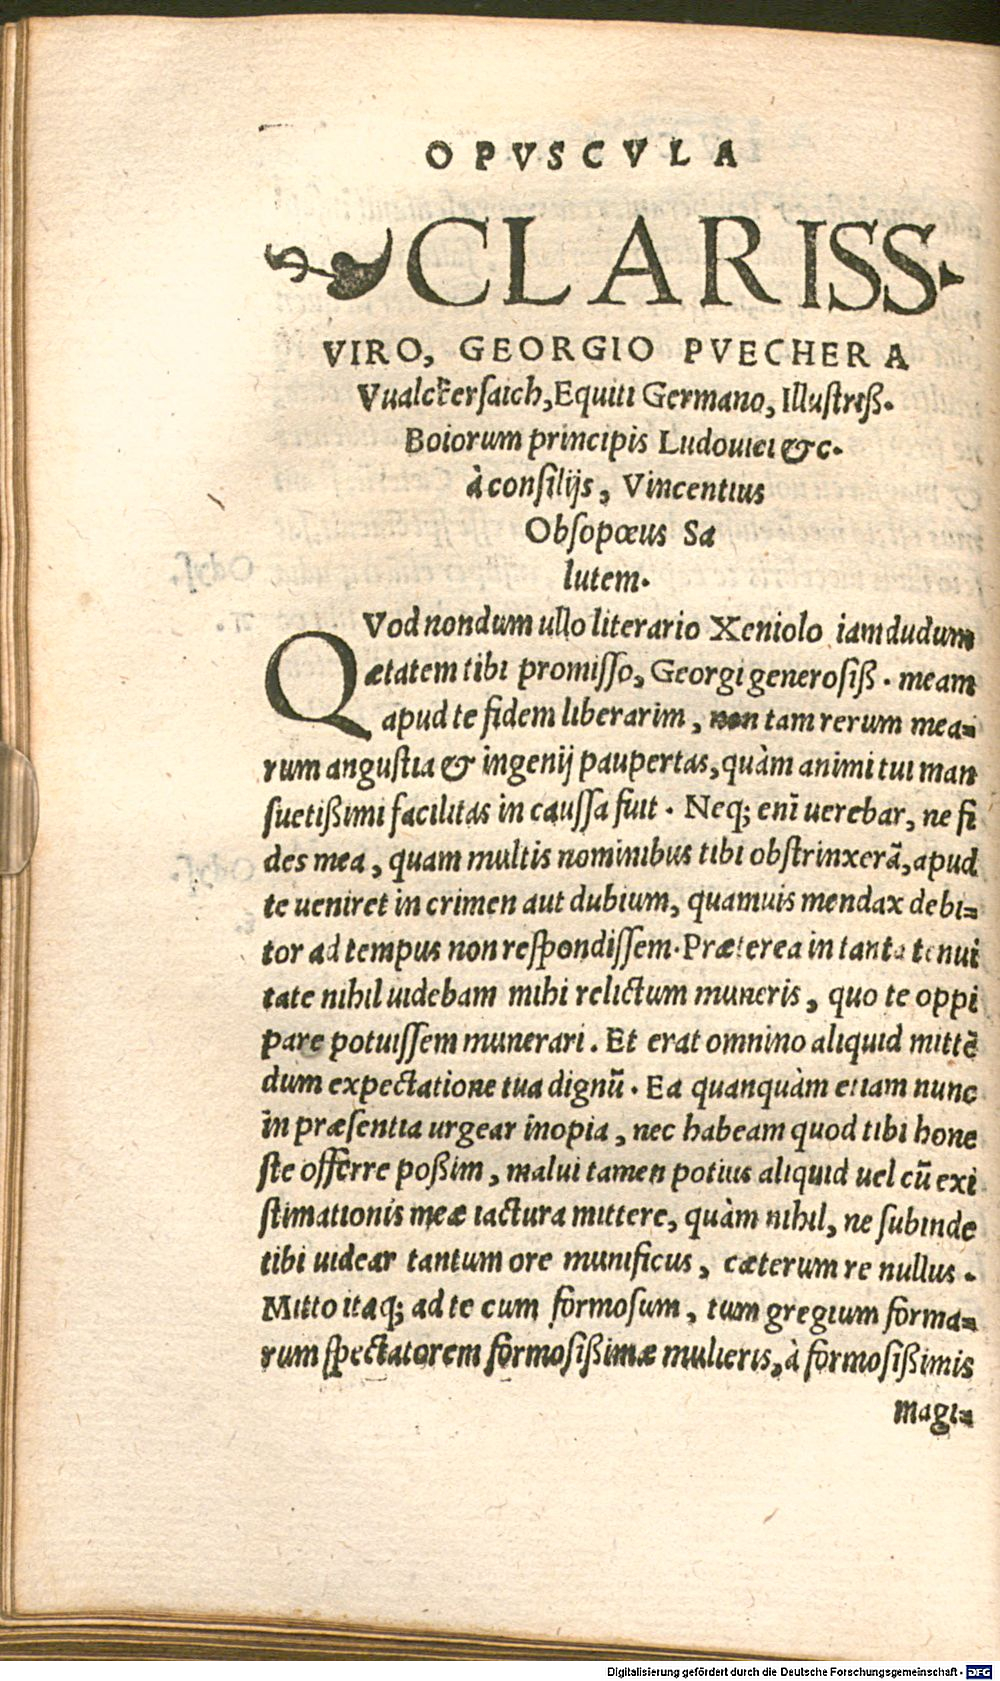 OPVSCVLA
CLARISS.
VIRO, GEORGIO PVECHER A
Vualckersaich, Equiti Germano, Illustriß.
Boiorum principis Ludouici &c.
à consilijs, Vincentius
Obsopœus Sa
lutem.
QVod nondum ullo literario Xeniolo iamdudum
ætatem tibi promisso, Georgi generosiß. meam
apud te fidem liberarim, non tam rerum mea=
rum angustia & ingenij paupertas, quàm animi tui man
suetißimi facilitas in caussa fuit. Neq; enī uerebar, ne fi
des mea, quam multis nominibus tibi obstrinxerā, apud
te ueniret in crimen aut dubium, quamuis mendax debi=
tor ad tempus non respondissem. Præterea in tanta tenui
tate nihil uidebam mihi relictum muneris, quo te oppi
pare potuissem munerari. Et erat omnino aliquid mittē
dum expectatione tua dignū. Ea quanquàm etiam nunc
in præsentia urgear inopia, nec habeam quod tibi hone
ste offerre poßim, malui tamen potius aliquid uel cū exi
stimationis meæ iactura mittere, quàm nihil, ne subinde
tibi uidear tantum ore munificus, cæterum re nullus.
Mitto itaq; ad te cum formosum, tum gregium forma=
rum spectatorem formosißimæ mulieris, à formosißimis
magi=
Digitalisierung gefördert durch die Deutsche Forschungsgemeinschaft - DFG